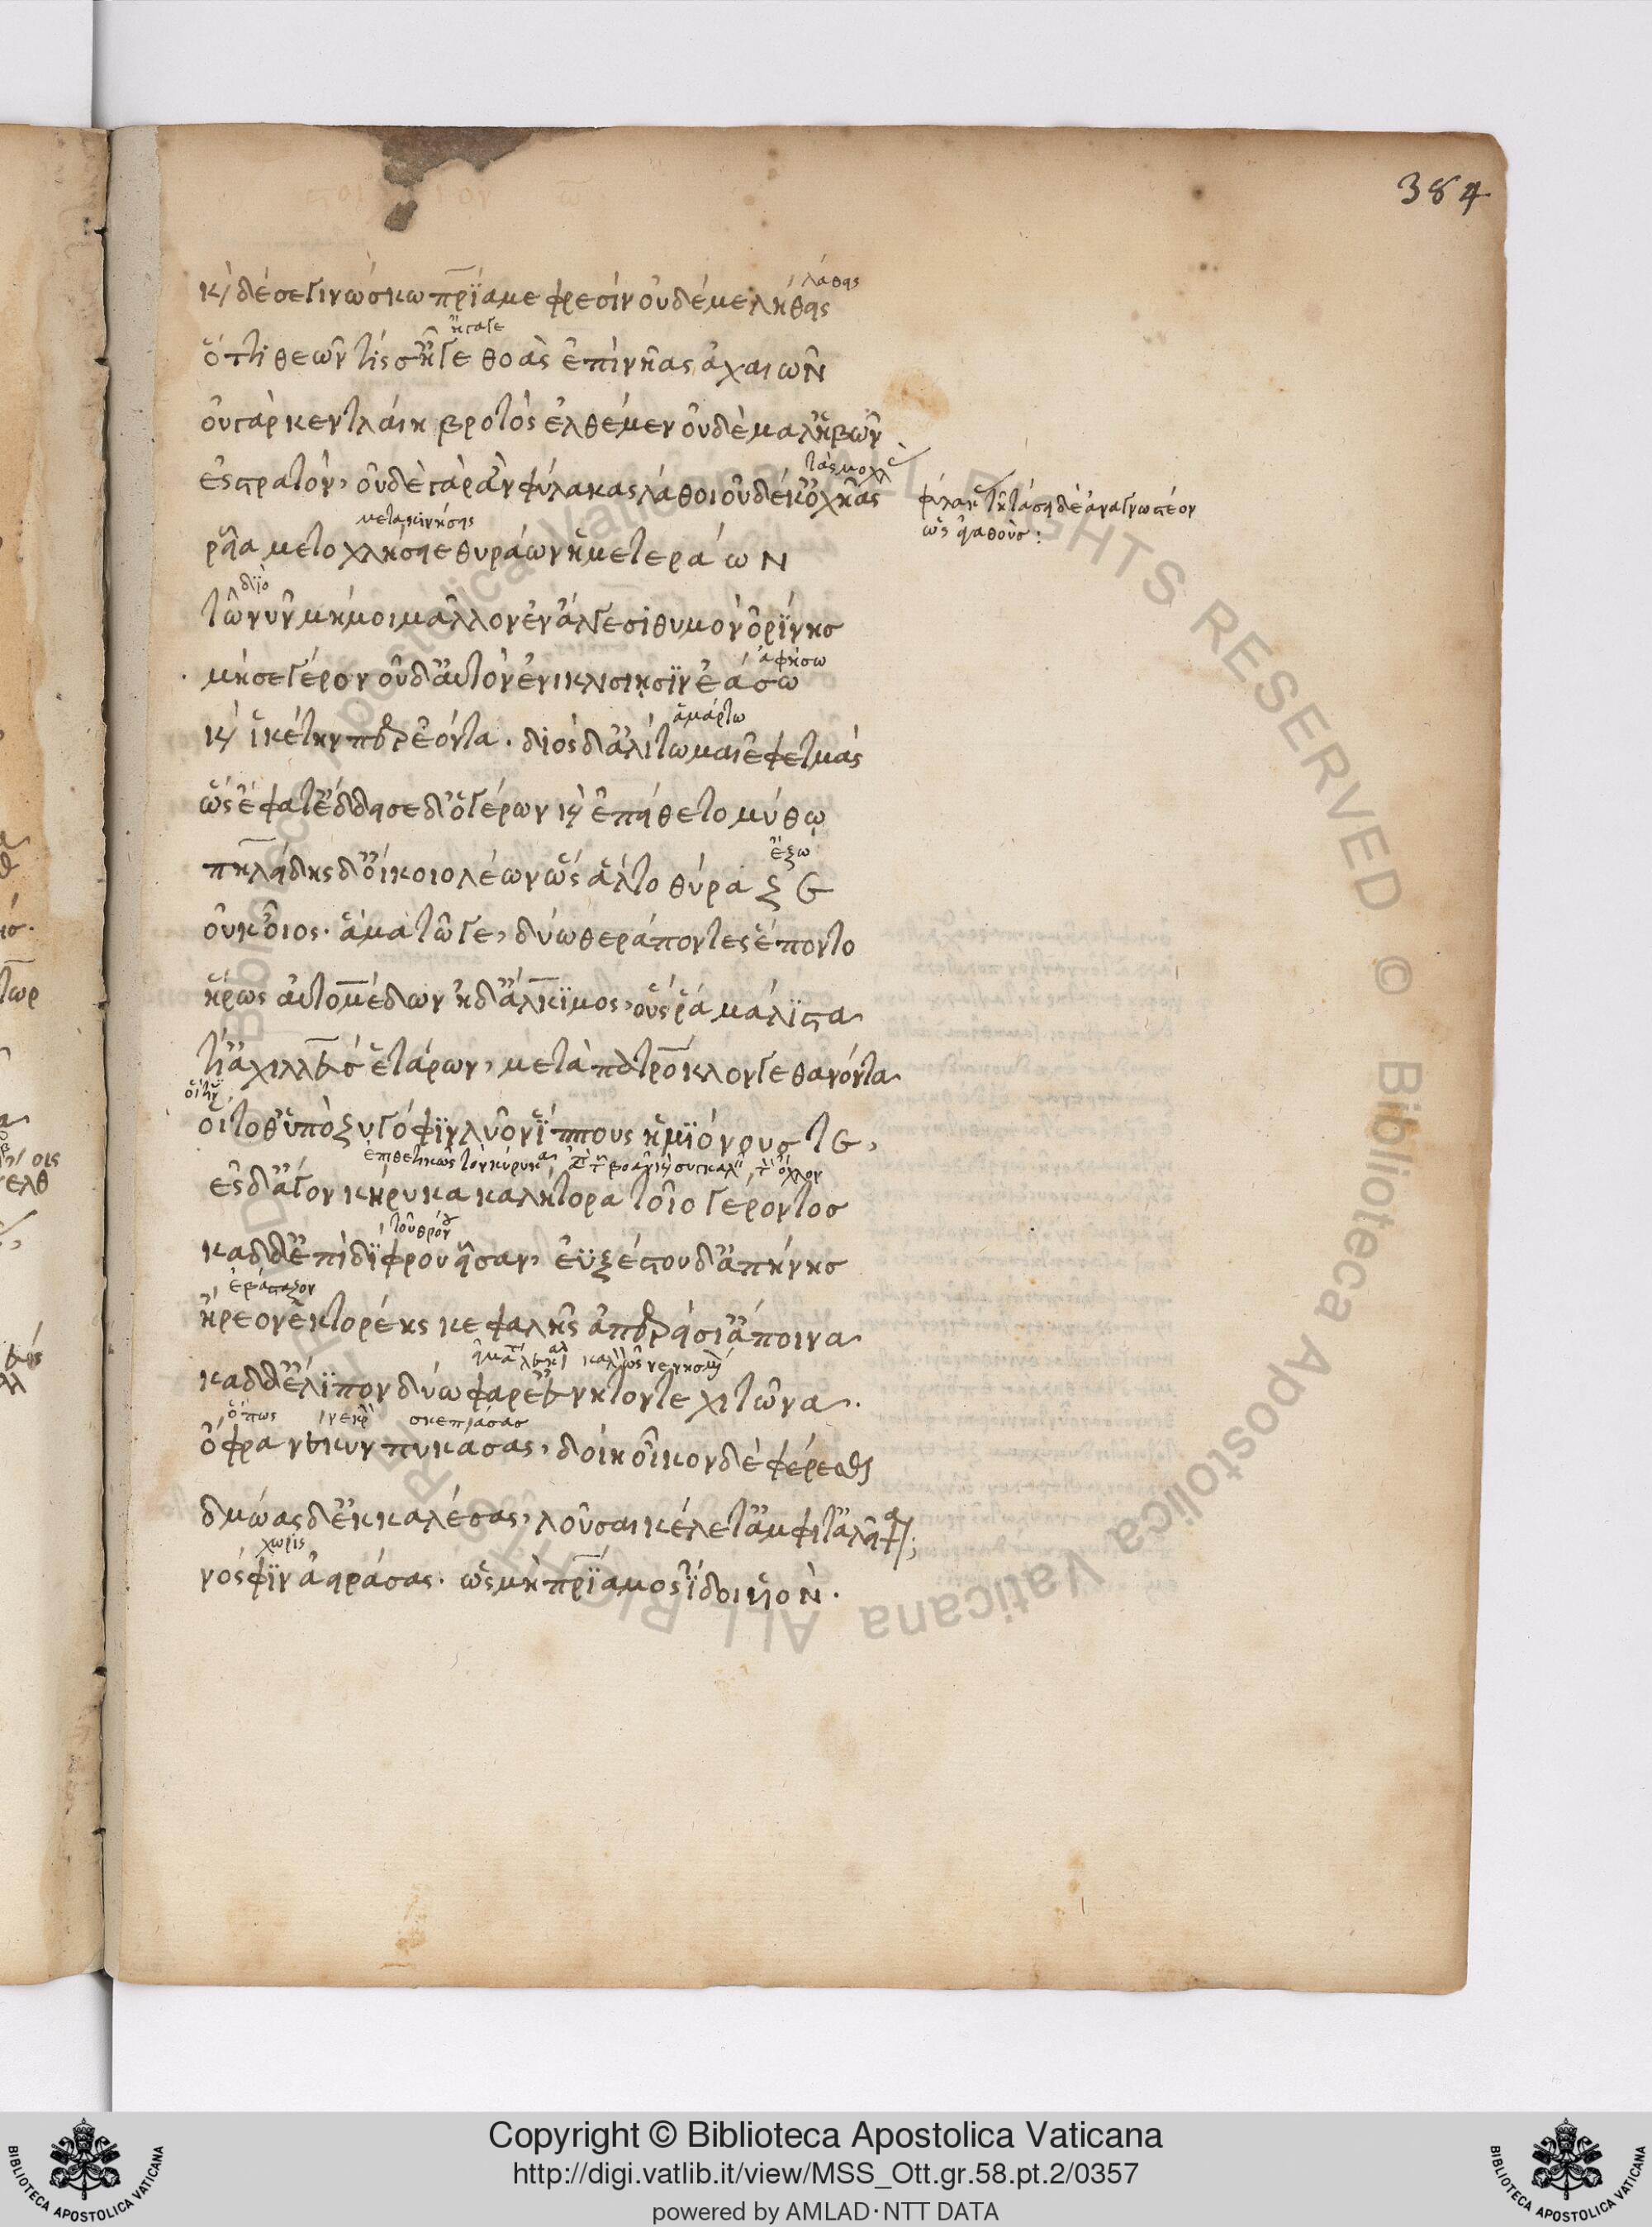 384
λάθης
κὶ δέ σε γινώσκω πρίαμε φρεσὶν οὐδέ με λήθεις
ἤγαγε
ὅττι θεῶν τίς σ' ἦγε θοὰς ἐπὶ νῆας ἀχαιῶν
οὐ γάρ κεν τλαίη βροτὸς ἐλθέμεν οὐδὲ μάλ' ἡβῶν
τὰς μοχλ
ἐς στρατὸν, οὐδὲ γὰρ ἂν φύλακας λάθοι οὐδέ κ' ὀχῆας
μετακινήσης
ῥεῖα μετοχλήσειε θυράων ἡμετεράων
διὸ
τῶ νῦν μή μοι μᾶλλον ἐν ἄλγεσι θυμὸν ὀρίνης
ἀφήσω
μή σε γέρον οὐδ' αὐτὸν ἐνὶ κλισίησιν ἐάσω
ἁμάρτω
κὶ ἱκέτην περ ἐόντα. διὸς δ' ἀλίτωμαι ἐφετμάς
ὣς ἔφατ' ἔδδεισε δ' ὁ γέρων κὶ ἐπείθετο μύθω
ἔξω
πηλείδης δ' οἴκοιο λέων ὣς ἆλτο θύραζε
οὐκ οἶος. ἅμα τῶγε, δύω θεράποντες ἕποντο
ἥρως αὐτομέδων ἠδ' ἄλκιμος, οὕς ῥα μάλιστα
τῖ ἀχιλλεὺς ἑτάρων, μετὰ πάτροκλόν γε θανόντα
οἵ τόθ' ὑπὸ ζυγόφιν λύον ἵππους ἡμιόνους τε,
ἐπιθετικῶς τὸν κήρυκα
ἐς δ' ἄγον κήρυκα καλήτορα τοῖο γέροντος
τοῦ θρόνου
καδδ' ἐπὶ δίφρου εἷσαν, ἐϋξέστου δ' ἀπήνης
ἐβάσταζον
ἥρεον ἑκτορέης κεφαλῆς ἀπερείσι' ἄποινα
καδδ' ἔλιπον δύω φάρε' ἐύννητόν τε χιτῶνα.
ὅπως νεκρὸν σκεπάσας
ὄφρα νέκυν πυκάσας, δοίη οἶκον δὲ φέρεσθαι
δμωὰς δ' ἐκκαλέσας, λοῦσαι κέλετ' ἀμφί τ' ἀλεῖψαι;
χωρὶς
νόσφιν ἀειράσας. ὡς μὴ πρίαμος ἴδοι υἱόν.
φύλακας ἐν ἐκτάσει δὲ ἀναγνωστέον
ὡς ἀγαθούς:
Copyright © Biblioteca Apostolica Vaticana
http://digi.vatlib.it/view/MSS_Ott.gr.58.pt.2/0357
powered by AMLAD·NTT DATA
BIBLIOTECA APOSTOLICA VATICANA
BIBLIOTECA APOSTOLICA VATICANA